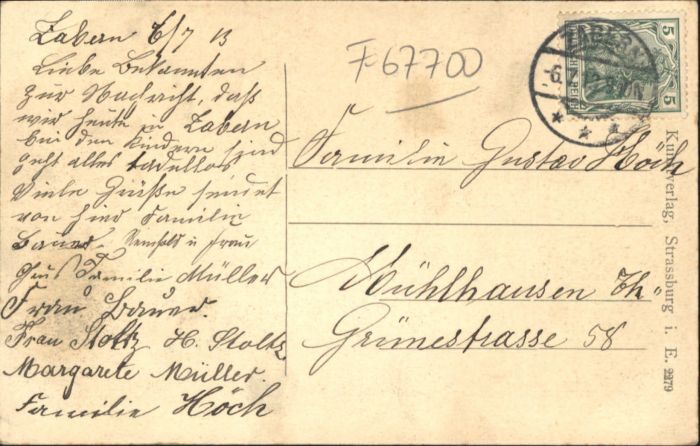 Zabern 6/7 13
Liebe Bekannten
zur Nachricht, daß
wir heute in Zabern
bei den Kindern sind
geht alles tadellos
Viele Grüße sendet
von hier Familie
Bauer u Frau
Gruß Familie Müller
Frau Bauer.
Frau Stoltz H. Stoltz
Margarete Müller.
Familie Höch
F-67700
ZABERN
6.7.
5
5
Familie Gustav Höch
Mühlhausen Th"
Grünestrasse 58
Kunstverlag, Strassburg i. E. 2279